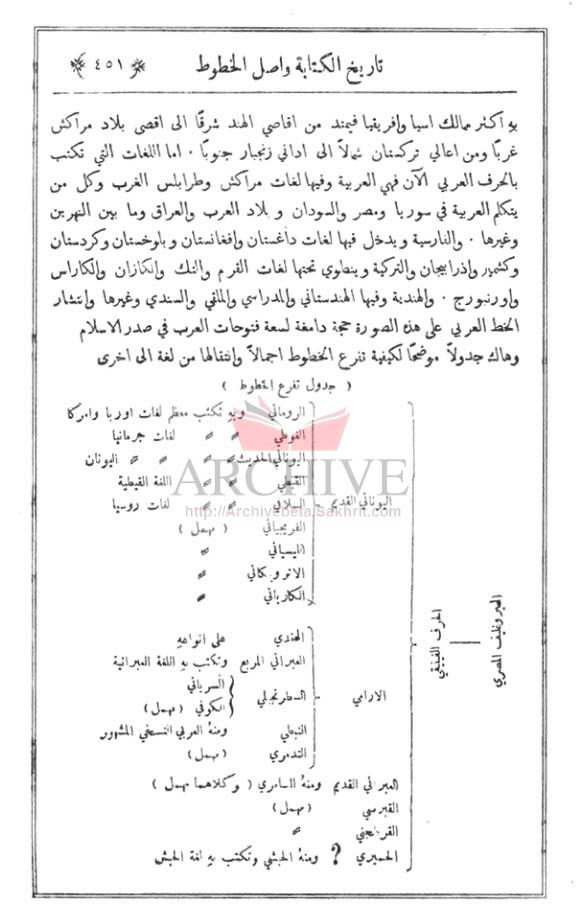 تاريخ الكتابة واصل الخطوط ٤٥١
به اكثر ممالك اسيا وافريقيا فيمتد من اقاصي الهند شرقًا الى اقصى بلاد مراكش
غربًا ومن اعالي تركستان شمالاً الى اداني زنجبار جنوبًا . اما اللغات التي تكتب
بالحرف العربي الآن فهي العربية وفيها لغات مراكش وطرابلس الغرب وكل من
يتكلم العربية في سوريا ومصر والسودان و بلاد العرب والعراق وما بين النهرين
وغيرها . والفارسية ويدخل فيها لغات داغستان وافغانستان و بلوخستان وكردستان
وكشمير واذرابيجان والتركية وينطوي تحتها لغات القرم والتك والكازان والكاراس
واورنبورج . والهندية وفيها الهندستاني والمدراسي والملقي والسندي وغيرها وانتشار
الخط العربي على هذه الصورة حجة دامغة لسعة فتوحات العرب في صدر الاسلام
وهاك جدولاً موضحًا لكيفية تفرع الخطوط اجمالاً وانتقالها من لغة الى اخرى
( جدول تفرع الخطوط )
الهيروغليف المصري
الحرف الفينيقي
اليوناني القديم
الروماني وبه تكتب معظم لغات اوربا واميركا
القوطي 〃 〃 لغات جرمانيا
اليوناني الحديث 〃 〃 〃 اليونان
القبطي 〃 〃 اللغة القبطية
السلافي 〃 〃 لغات روسيا
الفريجياني ( مهمل )
الليسياني 〃
الاتروسكاني 〃
الكارياني 〃
الارامي
الهندي على انواعه
العبراني المربع وتكتب به اللغة العبرانية
السطرنجيلي
السرياني
الكوفي ( مهمل )
النبطي ومنه العربي النسخي المشهور
التدمري ( مهمل )
العبراني القديم ومنه السامري ( وكلاهما مهمل )
القبرسي ( مهمل )
القرطجني 〃
الحميري ? ومنه الحبشي وتكتب به لغة الحبش
ARCHIVE
http://Archivebeta.Sakhrit.com